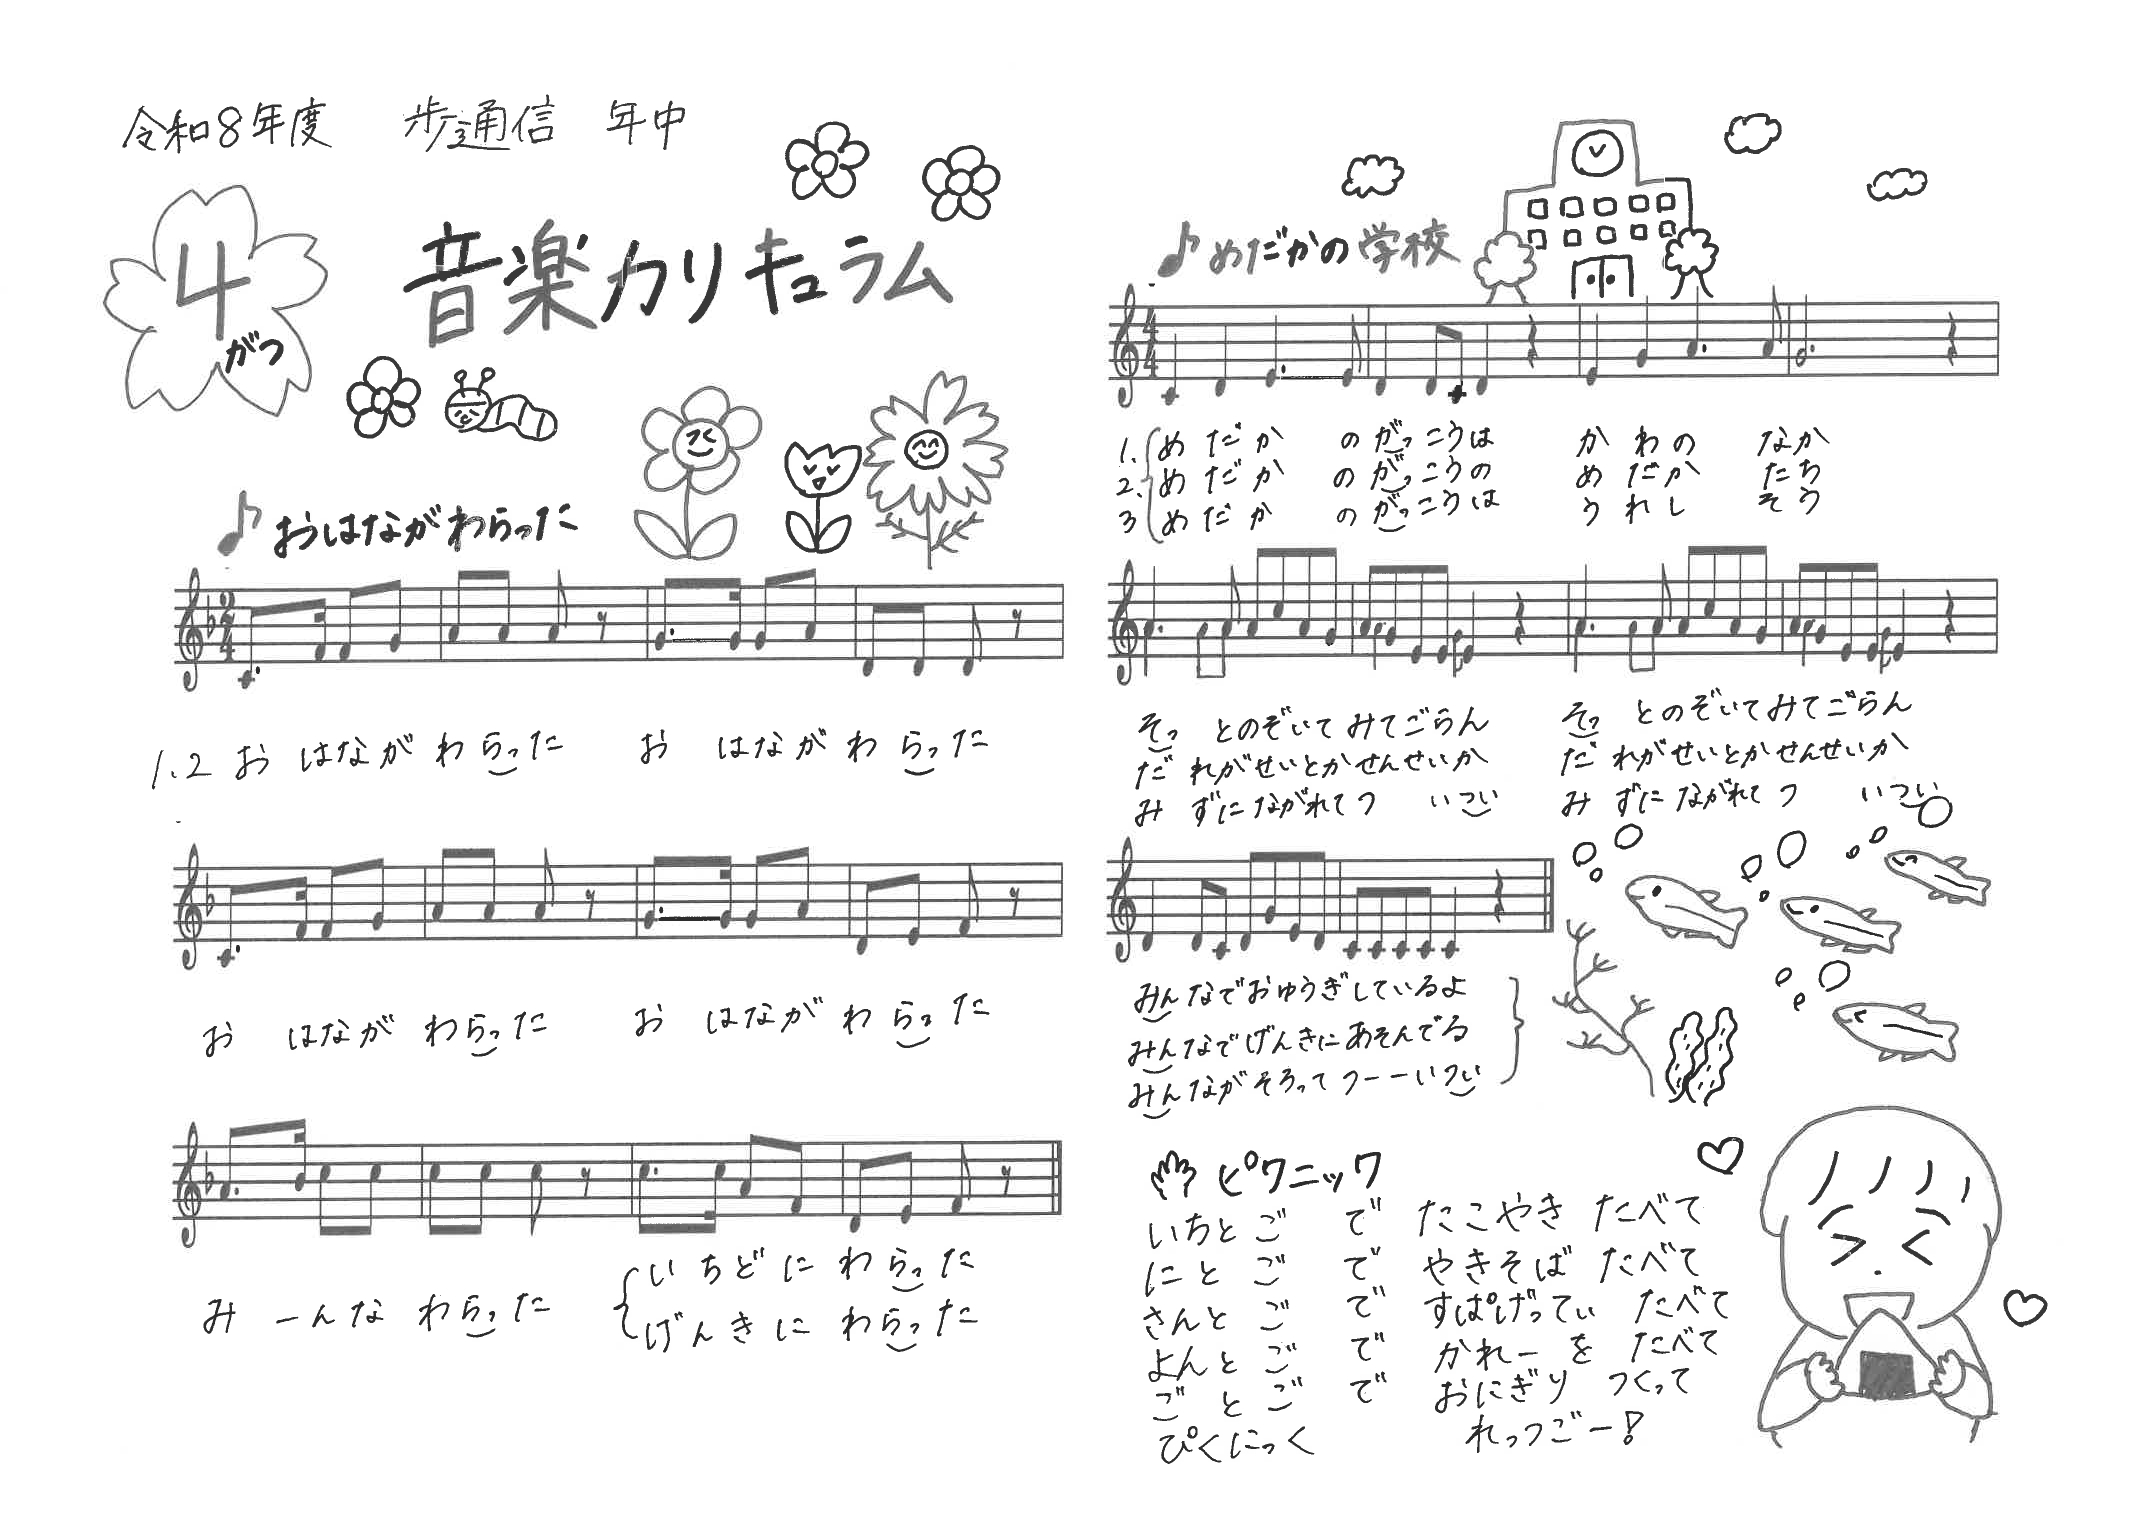 令和8年度 歩通信 年中
4がつ
音楽カリキュラム
おはながわらった
1.2 おはながわらった おはながわらった
おはながわらった おはながわらった
みーんなわらった いちどにわらった
げんきにわらった
めだかの学校
1. めだかのがっこうは かわのなか
2. めだかのがっこうの めだかたち
3 めだかのがっこうは うれしそう
そっとのぞいてみてごらん そっとのぞいてみてごらん
だれがせいとかせんせいか だれがせいとかせんせいか
みずにながれてついつい みずにながれてついつい
みんなでおゆうぎしているよ
みんなでげんきにあそんでる
みんながそろってつーーいつい
ピクニック
いちとごで たこやき たべて
にとごで やきそば たべて
さんとごで すぱげってぃ たべて
よんとごで かれーを たべて
ごとごで おにぎり つくって
ぴくにっく れっつごー!